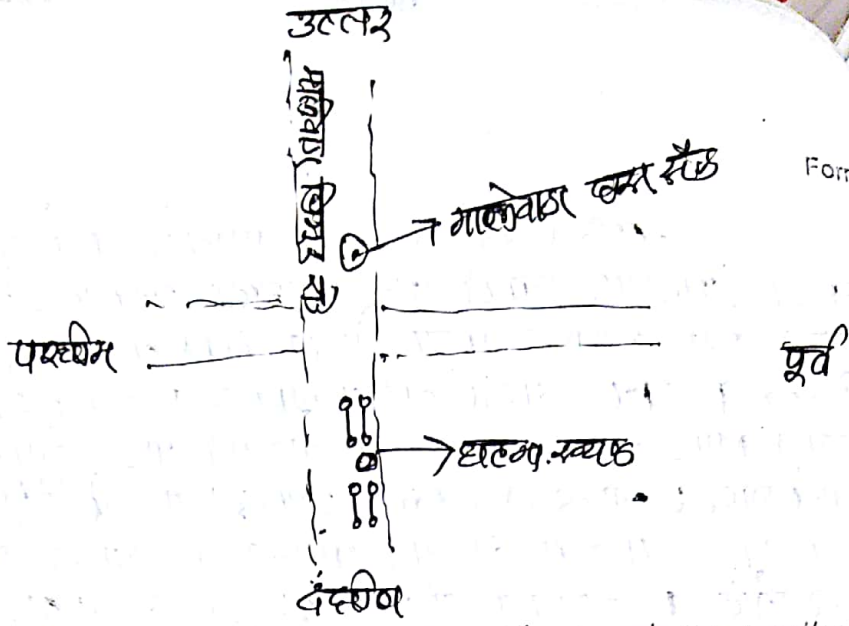 उत्तर
रोड
मालेवाडा बस स्टॅंड
Form
पश्चीम
पूर्व
घटना स्थळ
दक्षीण